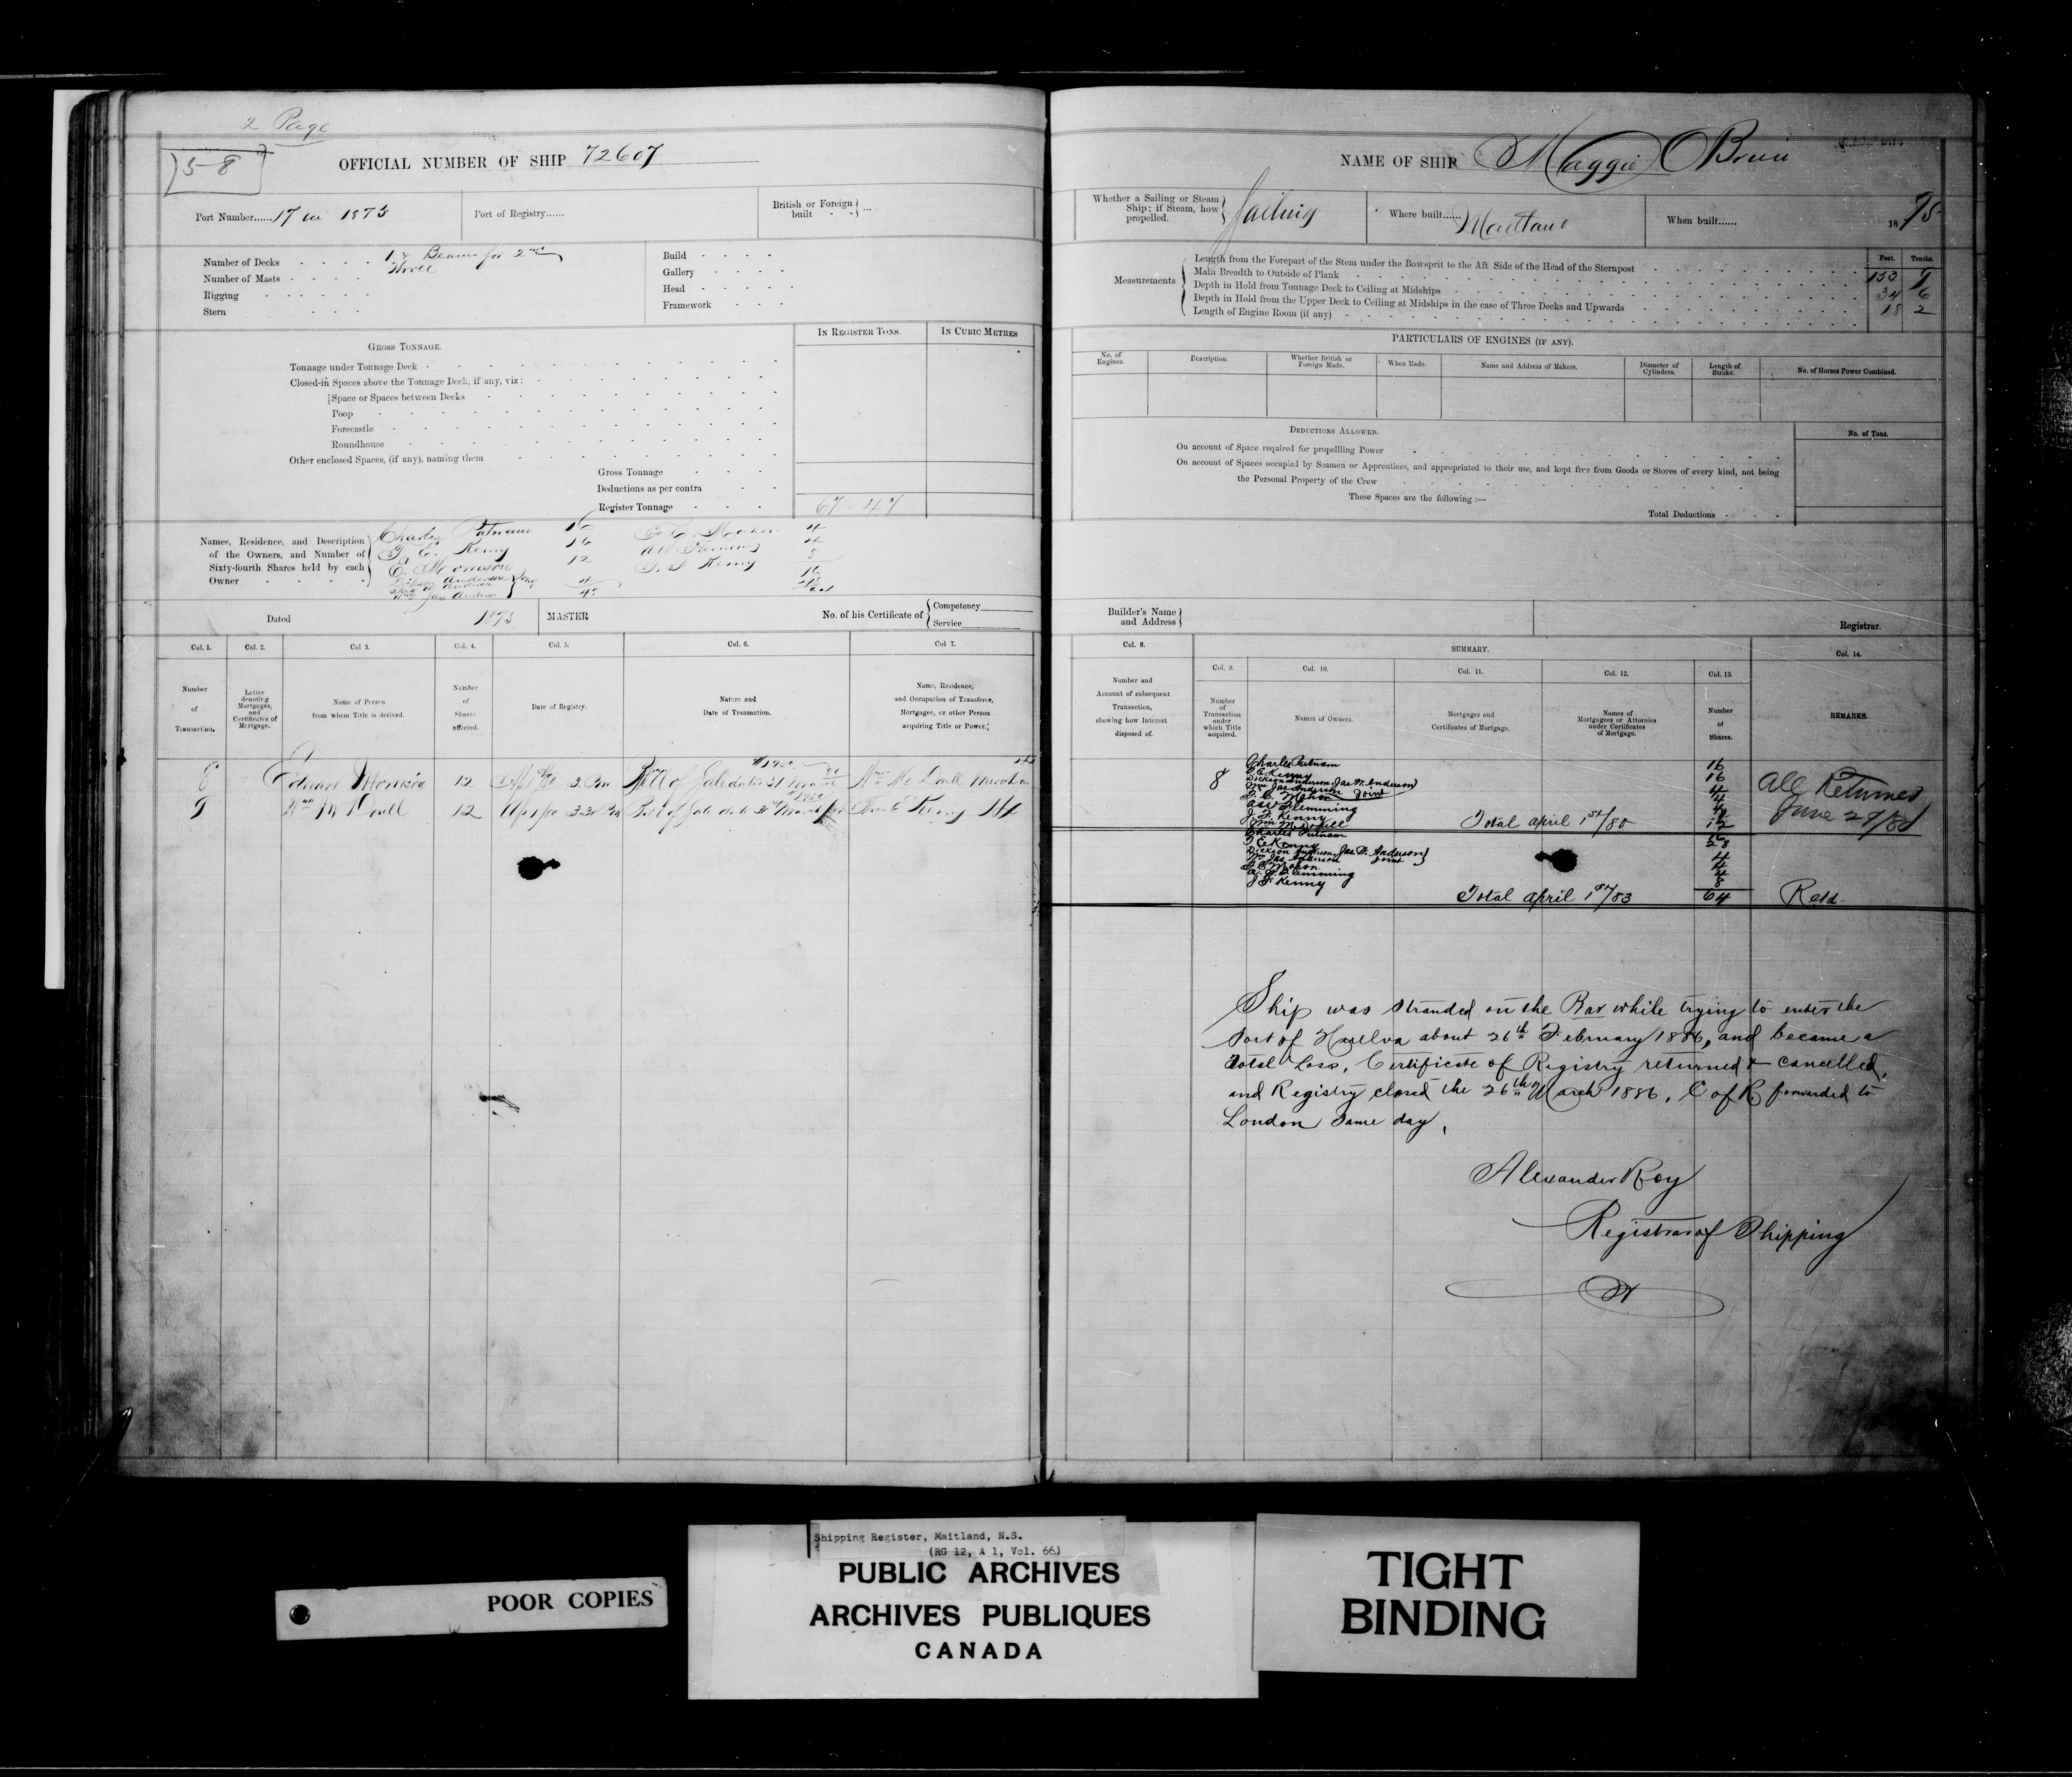 2 Page
5-8
OFFICIAL NUMBER OF SHIP 72607
Port Number...... 17 in 1875
Port of Registry......
British or Foreign built
Number of Decks 1 & Beams for 2nd
Number of Masts Three
Rigging
Stern
Build
Gallery
Head
Framework
IN REGISTER TONS.
IN CUBIC METRES
GROSS TONNAGE.
Tonnage under Tonnage Deck
Closed-in Spaces above the Tonnage Deck, if any, viz:
Space or Spaces between Decks
Poop
Forecastle
Roundhouse
Other enclosed Spaces, (if any), naming them
Gross Tonnage
Deductions as per contra
Register Tonnage
Names, Residence, and Description of the Owners, and Number of Sixty-fourth Shares held by each Owner
Charles Putnam 16
T. E. Kenny 16
E. Morrison 12
Mahon 4
Flemming 4
Kenny 8
Dated 1875
MASTER
No. of his Certificate of
Competency
Service
Col. 1.
Col. 2.
Col 3.
Col. 4.
Col. 5.
Col. 6.
Col 7.
Number of Transaction.
Letter denoting Mortgages, and Certificates of Mortgage.
Name of Person from whom Title is derived.
Number of Shares affected.
Date of Registry.
Nature and Date of Transaction.
Name, Residence, and Occupation of Transferee, Mortgagee, or other Person acquiring Title or Power.
8 Edward Morrison 12 3 Pm Bill of Sale dated 31 March
9 Wm McDoull 12 3 30 Pm Bill of Sale March Kenny Hfx
NAME OF SHIP Maggie
Whether a Sailing or Steam Ship; if Steam, how propelled.
Sailing
Where built...... Maitland
When built...... 1875
Measurements
Feet.
Tenths.
Length from the Forepart of the Stem under the Bowsprit to the Aft Side of the Head of the Sternpost 153 9
Main Breadth to Outside of Plank 34 6
Depth in Hold from Tonnage Deck to Ceiling at Midships 18 2
Depth in Hold from the Upper Deck to Ceiling at Midships in the case of Three Decks and Upwards
Length of Engine Room (if any)
PARTICULARS OF ENGINES (IF ANY).
No. of Engines.
Description.
Whether British or Foreign Made.
When Made.
Name and Address of Makers.
Diameter of Cylinders.
Length of Stroke.
No. of Horses Power Combined.
DEDUCTIONS ALLOWED.
No. of Tons.
On account of Space required for propellling Power
On account of Spaces occupied by Seamen or Apprentices, and appropriated to their use, and kept free from Goods or Stores of every kind, not being
the Personal Property of the Crew
These Spaces are the following :—
Total Deductions
Builder's Name and Address
Registrar.
Col. 8.
SUMMARY.
Col. 14.
Col. 9.
Col. 10.
Col. 11.
Col. 12.
Col. 13.
Number and Account of subsequent Transaction, showing how Interest disposed of.
Number of Transaction under which Title acquired.
Names of Owners.
Mortgages and Certificates of Mortgage.
Names of Mortgagees or Attornies under Certificates of Mortgage.
Number of Shares.
REMARKS.
Charles Putnam 16
8 T. E. Kenny 16
Dickson Anderson, Jas. W. Anderson
Mrs Jas Anderson Joint 4
Mahon 4
Flemming 4
J. F. Kenny 8
12
All Returned
June 29/80
Total april 1st/80
Charles Putnam 16
T. E. Kenny 28
Dickson Anderson, Jas. W. Anderson
Mrs Jas Anderson Joint 4
Mahon 4
Flemming 4
J. F. Kenny 8
Total april 1st/83 64 Retd.
Ship was stranded on the Bar while trying to enter the
Port of Huelva about 26th February 1886, and became a
Total Loss. Certificate of Registry returned & cancelled,
and Registry closed the 26th March 1886. C of R forwarded to
London same day.
Alexander Roy
Registrar of Shipping
POOR COPIES
Shipping Register, Maitland, N.S.
(RG 12, A 1, Vol. 66)
PUBLIC ARCHIVES
ARCHIVES PUBLIQUES
CANADA
TIGHT
BINDING